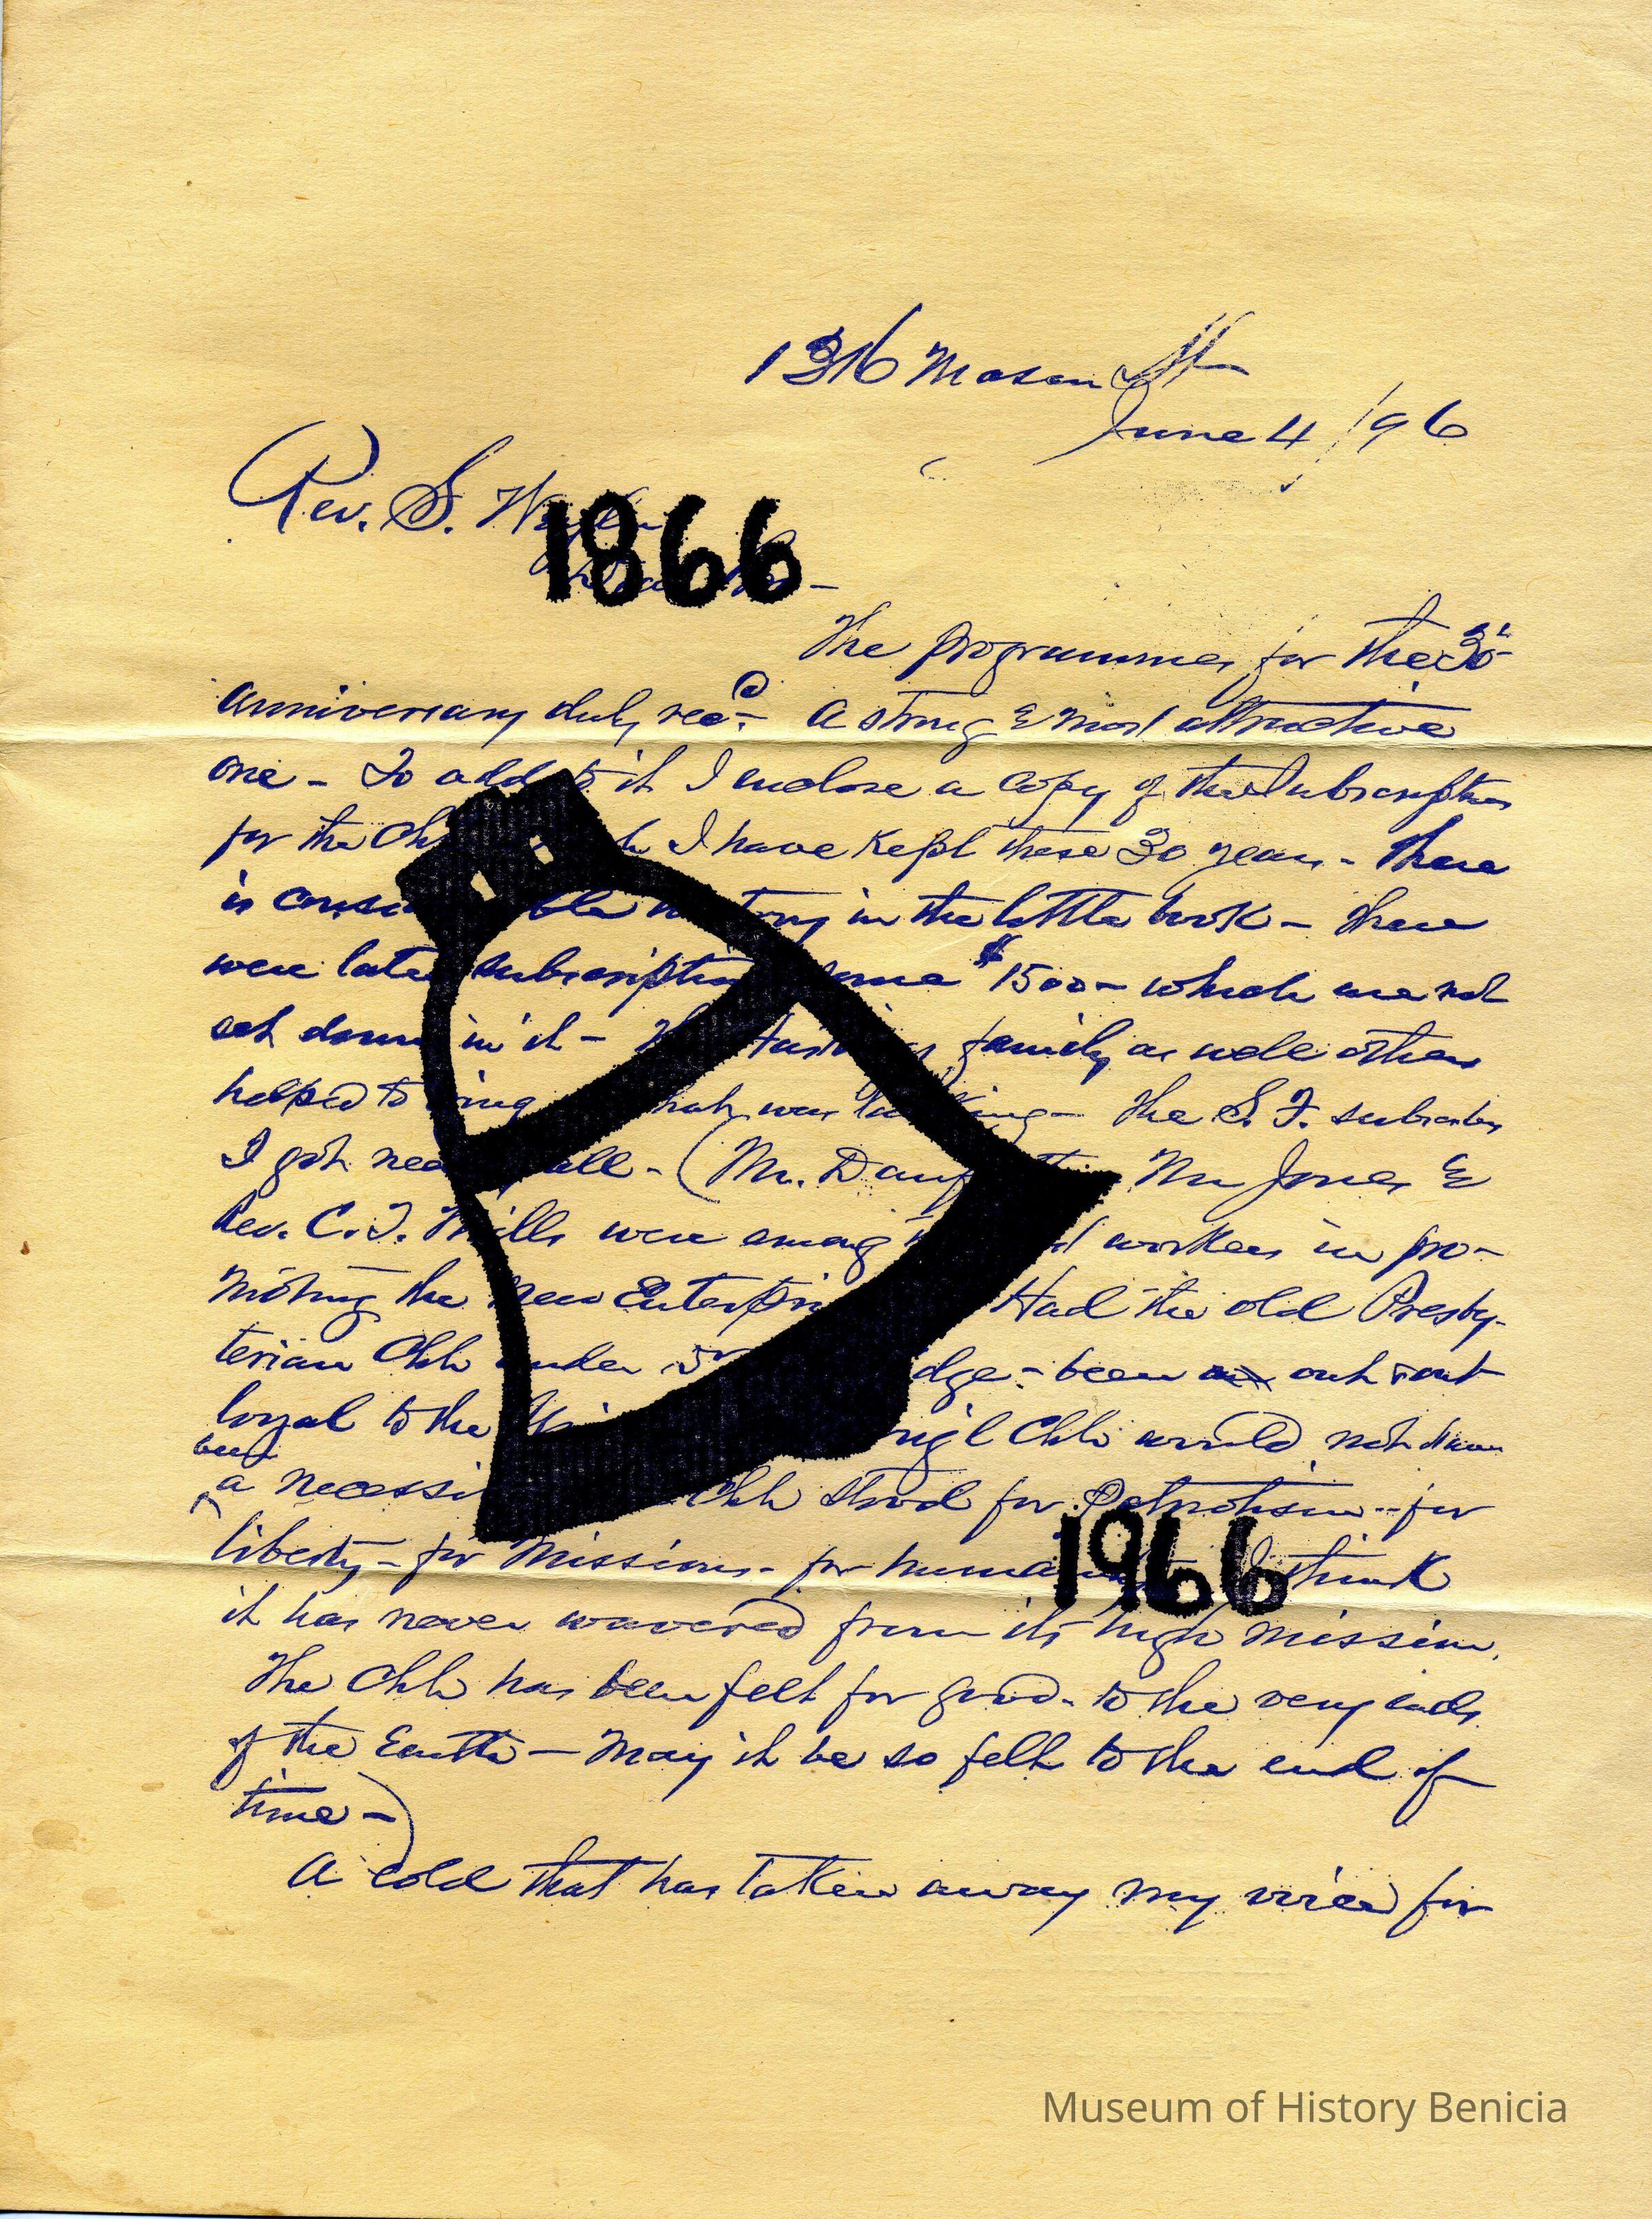 1316 Mason St
June 4 /96
Rev. S.
1866
The programmes for the 30th
anniversary duly recd. A strong & most attractive
one - To add to it I enclose a copy of the Subscription
for the Chh I have kept these 30 years - There
is considerable history in the little book - There
were later subscriptions some $1500 - which are not
set down in it - family as well others
helped to was lacking - The S. F. subscribers
I got nearly all - (Mr. Mr Jones &
Rev. C. T. Mills were among workers in pro-
moting the new Enterprise Had the old Presby-
terian Chh under been out & out
loyal to the Chh would not have
been
a Chh stood for Patriotism - for
liberty - for Missions - for humanity I think
it has never wavered from its high mission.
The Chh has been felt for good - to the very ends
of the Earth - May it be so felt to the end of
time -)
A cold that has taken away my voice for
1966
Museum of History Benicia